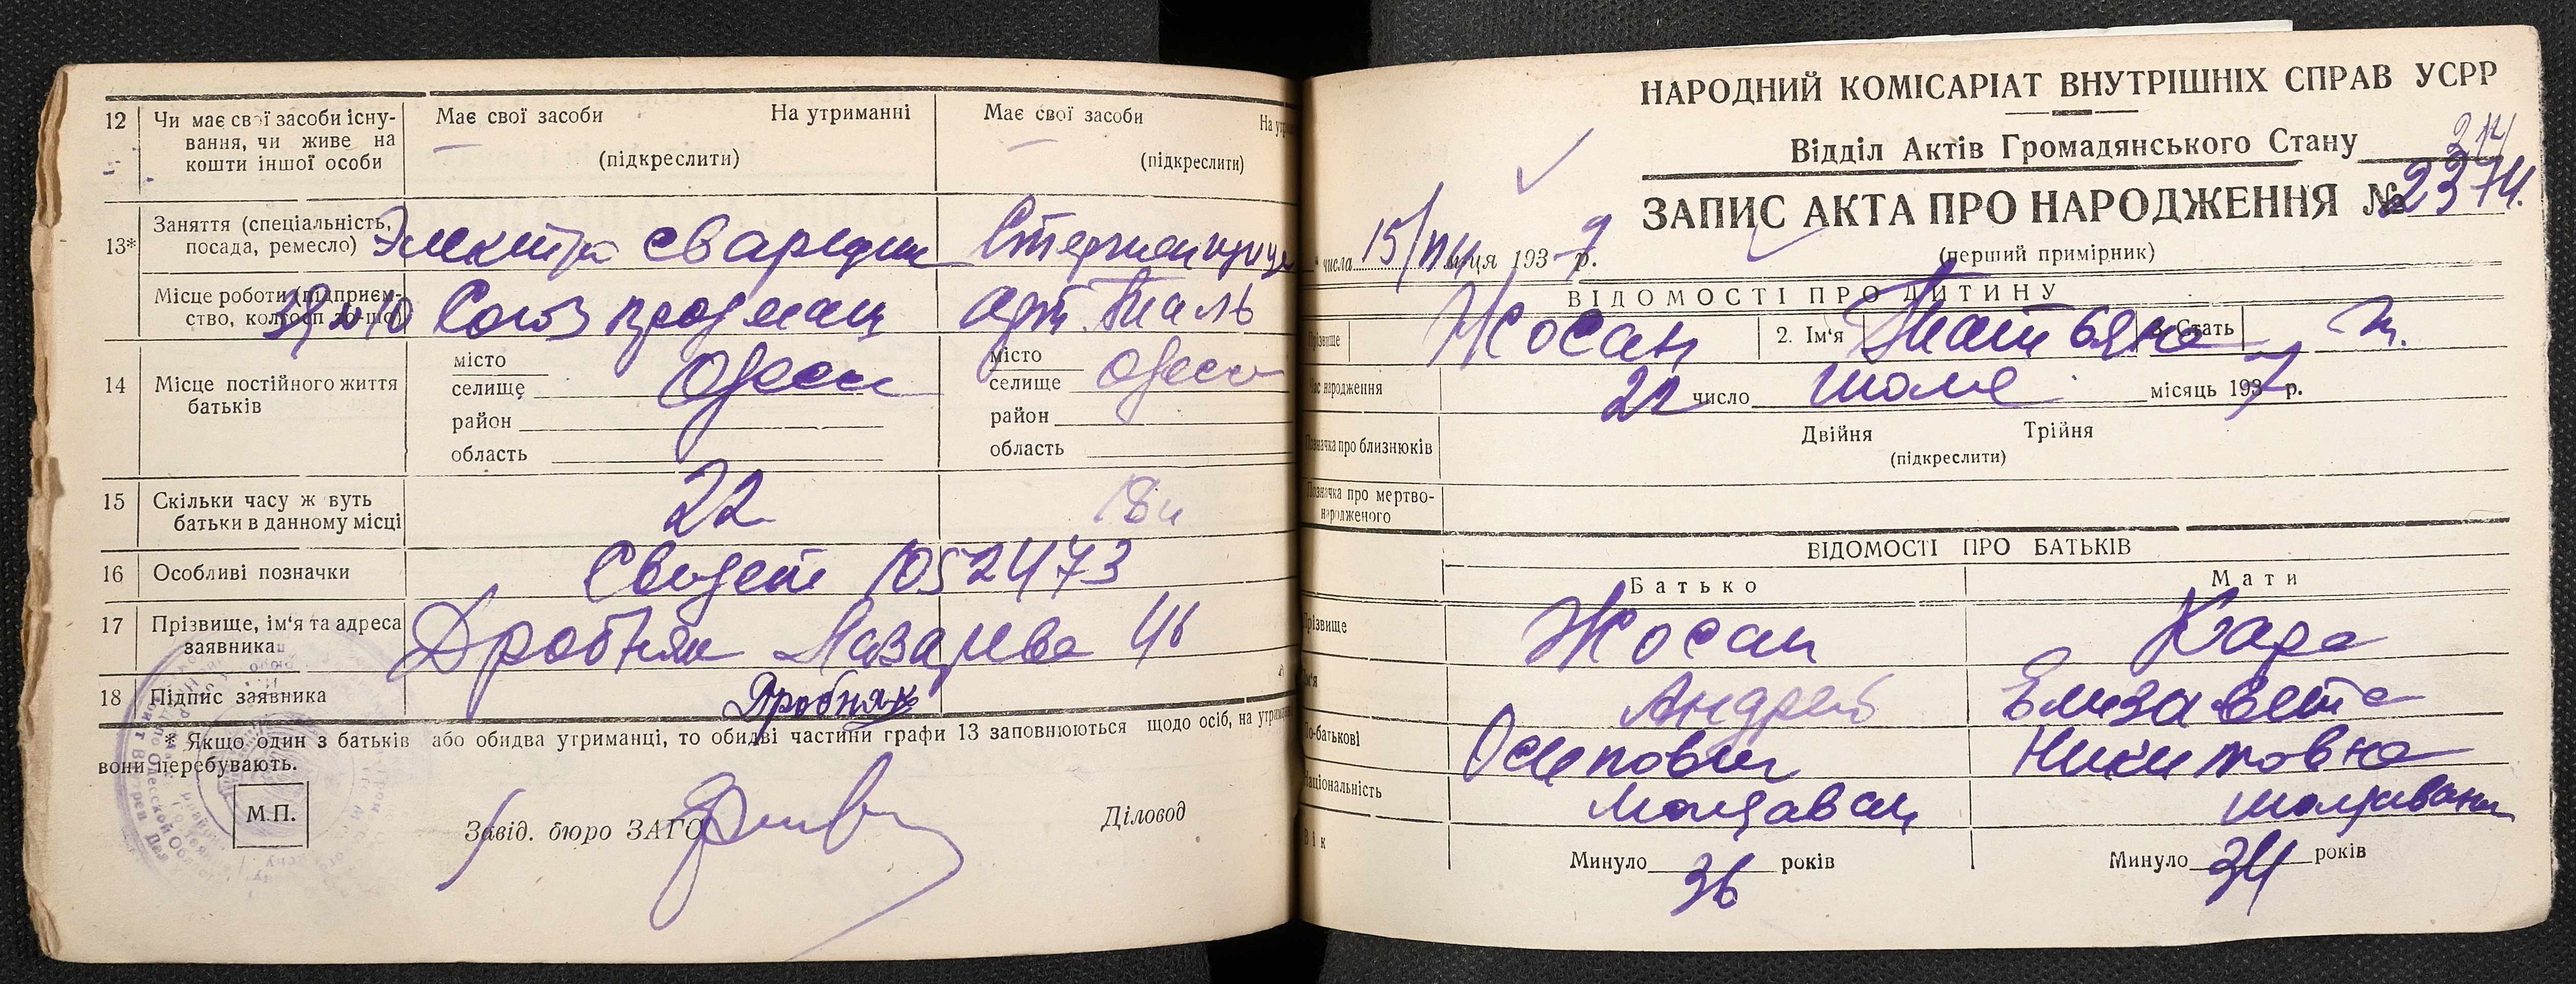 12 Чи має свої засоби існу-
вання, чи живе на
кошти іншої особи
Має свої засоби На утриманні
(підкреслити)
Має свої засоби
(підкреслити)
13* Заняття (спеціальність,
посада, ремесло)
Электро сварщик
Місце роботи (підприєм-
Союз продмаш
14 Місце постійного життя
батьків
місто
селище Одесса
район
область
місто
селище Одесса
район
область
15 Скільки часу ж вуть
батьки в данному місці
22
18
16 Особливі позначки
Свидет 1052473
17 Прізвище, ім'я та адреса
заявника
Дробняк Лазарева 46
18 Підпис заявника
Дробняк
* Якщо один з батьків або обидва утриманці, то обидві частини графи 13 заповнюються щодо осіб, на
вони перебувають.
М.П.
Завід. бюро ЗАГС
Діловод
НАРОДНИЙ КОМІСАРІАТ ВНУТРІШНІХ СПРАВ УСРР
Відділ Актів Громадянського Стану
ЗАПИС АКТА ПРО НАРОДЖЕННЯ № 2374.
(перший примірник)
числа 15/ 193 р.
ВІДОМОСТІ ПРО ДИТИНУ
Жосан
2. Ім'я Татьяна
3. Стать ж.
народження
число місяць 1937 р.
про близнюків
Двійня Трійня
(підкреслити)
про мертво-
народженого
ВІДОМОСТІ ПРО БАТЬКІВ
Батько Мати
Прізвище Жосан Кара
Андрей Елизавета
По-батькові Осипович Никитовна
Національність Молдаван молдаванк
Вік
Минуло 36 років
Минуло 34 років